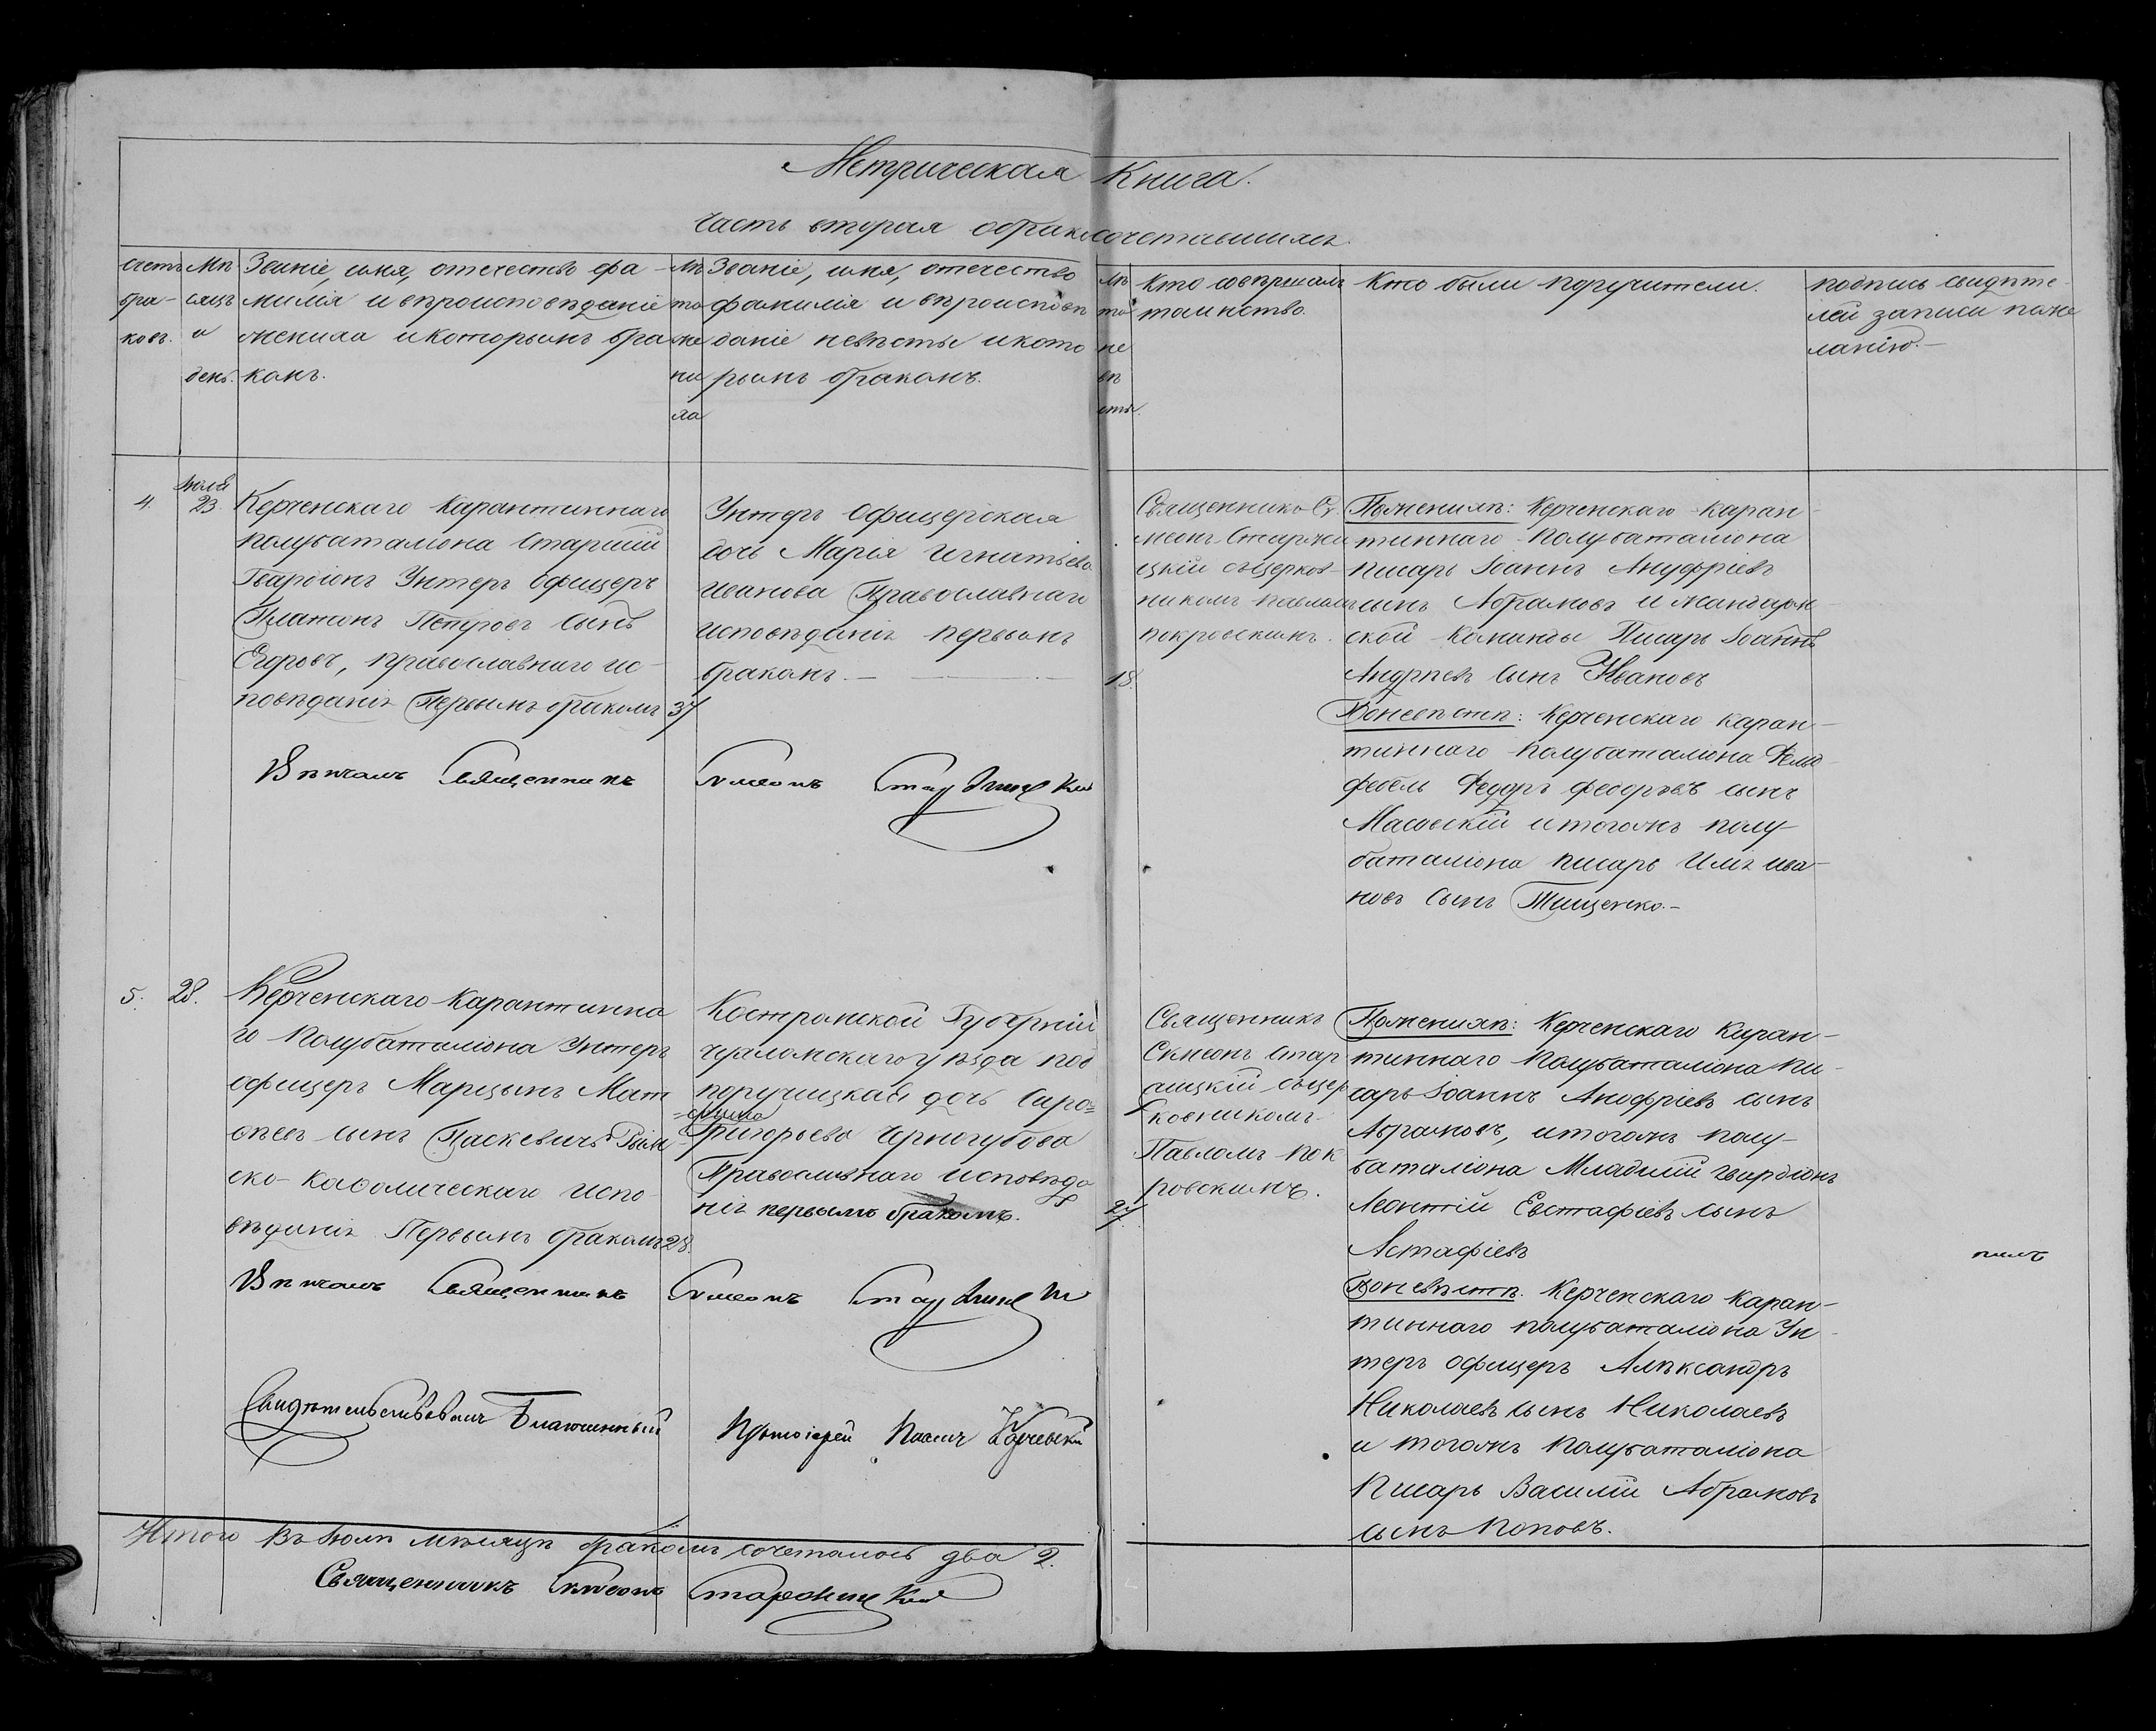 Метрическая Книга.
Часть вторая о бракосочетавшихся.
Счетъ
бра-
ковъ.
Мѣ
сяцъ
и
день.
Званіе, имя, отечество фа-
милія и вѣроисповѣданіе
жениха и которымъ бра
комъ.
Лѣ
та
же
ни
ха
Званіе, имя, отечество
фамилія и вѣроисповѣ
даніе невѣсты и кото
рымъ бракомъ.
Лѣ
та
не
вѣ
сты.
Кто совершалъ
таинство.
Кто были поручители.
подпись свидѣте-
лей записи по же
ланію.-
4.
Іюля
23.
Керченскаго Карантиннаго
полубаталіона Старшій
Гвардіонъ Унтеръ Офицеръ
Платонъ Петровъ сынъ
Егоровъ, православнаго ис-
повѣданія Первымъ бракомъ
37
Унтеръ Офицерская
дочь Марія Игнатьева
Иванова Православнаго
исповѣданія первымъ
бракомъ.-
18.
Священникъ Си
меонъ Старжи
цкій съ церков-
никомъ Павломъ
покровскимъ.
По женихѣ: Керченскаго Каран-
тиннаго Полубаталіона
писарь Іоаннъ Ануфріевъ
сынъ Абрамовъ и жандарм-
ской команды Писарь Іоаннъ
Андрѣевъ сынъ Ивановъ
По невѣстѣ: Керченскаго каран-
тиннаго полубаталіона Фельд-
фебель Федоръ Федоровъ сынъ
Масовскій и тогожъ полу-
баталіона писарь Илія ива-
новъ сынъ Тищенко.-
Вѣнчалъ Священникъ Симеонъ Старжицкій
5.
28.
Керченскаго Карантинна
го Полубаталіона Унтеръ
офицеръ Марцынъ Мат
вѣевъ сынъ Паскевичъ Рим
ско-каѳолическаго испо-
вѣданія Первымъ бракомъ
28.
Костромской Губерніи
чухломскаго уѣзда под
поручицкая дочь Сера=
=фима
Григорьева Черногубова
Православнаго исповѣда
нія первымъ бракомъ.
27.
Священникъ
Симеонъ Стар
жицкій съ цер
ковникомъ
Павломъ пок
ровскимъ.
По женихѣ: Керченскаго Каран-
тиннаго Полубаталіона Пи-
сарь Іоаннъ Анофріевъ сынъ
Абрамовъ, и тогожъ полу-
баталіона Младшій гвардіонъ
Леонтій Евстафіевъ сынъ
Астафіевъ
По невѣстѣ. Керченскаго Каран-
тиннаго полубаталіона Ун-
теръ офицеръ Алѣксандръ
Николаевъ сынъ Николаевъ
и тогожъ полубаталіона
Писарь Василій Абрамовъ
сынъ Поповъ.
Вѣнчалъ Священникъ Симеонъ Старжицкій
Свидѣтельствовалъ Благочинный Протоіерей Павелъ
Итого въ Іюлѣ мѣсяцѣ бракомъ сочеталось два 2.
Священникъ Симеонъ Старжицкій